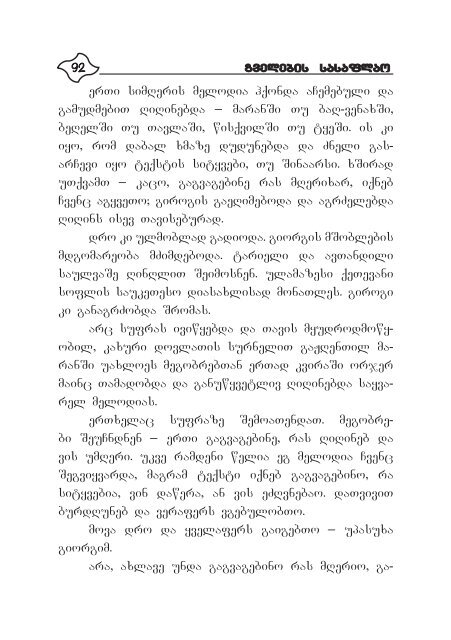 92
გველების სასაფლაო
ერთი სიმღერის მელოდია ჰქონდა აჩემებული და
გამუდმებით ღიღინებდა – მარანში თუ ბაღ-ვენახში,
ბეღელში თუ თავლაში, წისქვილში თუ ტყეში. ის კი
იყო, რომ დაბალ ხმაზე დუდუნებდა და ძნელი გას-
არჩევი იყო ტექსტის სიტყვები, თუ შინაარსი. ხშირად
უთქვამთ – კაცო, გაგვაგებინე რას მღერიხარ, იქნებ
ჩვენც აგყვეთო; გიროგის გაეღიმებოდა და აგრძელებდა
ღიღინს ისევ თავისებურად.
დრო კი ულმობლად გადიოდა. გიორგის მშობლების
მდგომარეობა მძიმდებოდა. ტარიელი და ავთანდილი
საულვაშე ღინღლით შეიმოსნენ. ულამაზესი ქეთევანი
სოფლის საუკეთესო დიასახლისად მონათლეს. გიროგი
კი განაგრძობდა შრომას.
არც სუფრას ივიწყებდა და თავის მყუდროდმოწყ-
ობილ, კახური დოვლათის სურნელით გაჟღენთილ მა-
რანში უახლოეს მეგობრებთან ერთად კვირაში ორჯერ
მაინც თამადობდა და განუწყვეტლივ ღიღინებდა საყვა-
რელ მელოდიას.
ერთხელაც სუფრაზე შემოათენდათ. მეგობრე-
ბი შეუჩნდნენ – ერთი გაგვაგებინე, რას ღიღინებ და
ვის უმღერი. უკვე რამდენი წელია ეგ მელოდია ჩვენც
შეგვიყვარდა, მაგრამ ტექსტი იქნებ გაგვაგებინო, რა
სიტყვებია, ვინ დაწერა, ან ვის ეძღვნებაო. დათვივით
ბურდღუნებ და ვერაფერს ვგებულობთო.
მოვა დრო და ყველაფერს გაიგებთო – უპასუხა
გიორგიმ.
არა, ახლავე უნდა გაგვაგებინო რას მღერიო, გა-